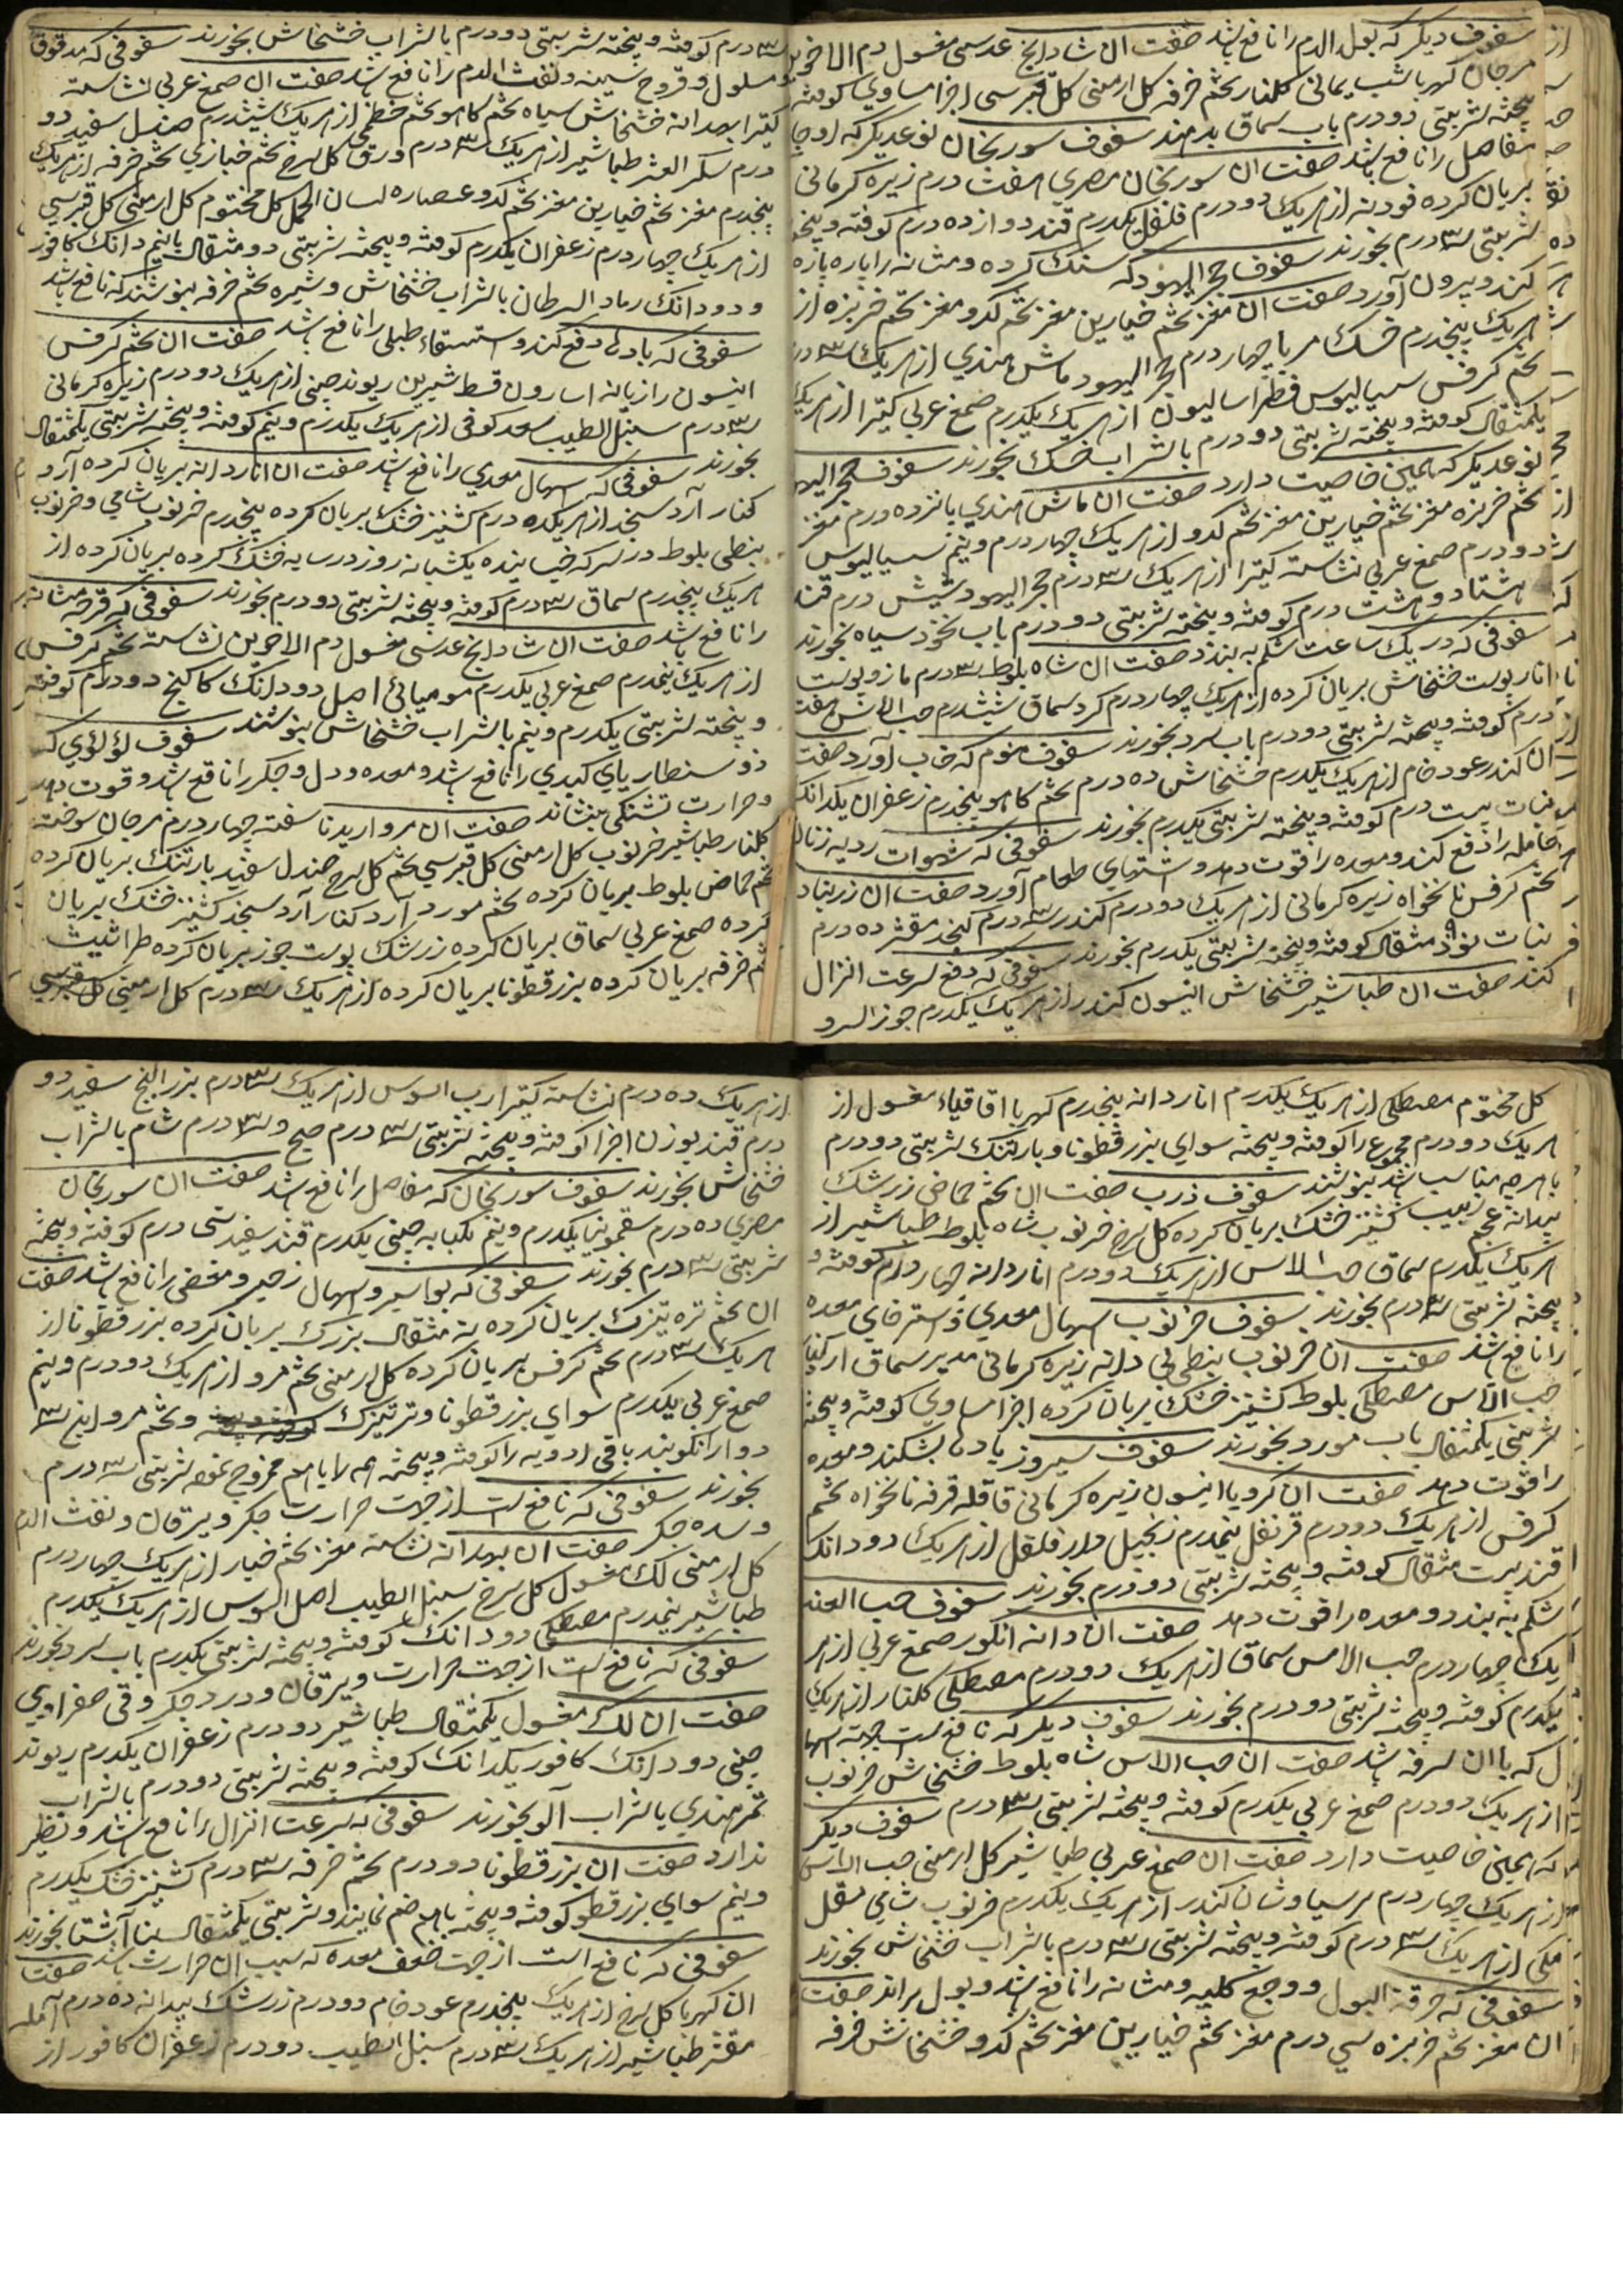 سفوف دیکر که بول الدم را نافع باشد صفت ان شادانج عدسی مغسول دم الاخوین
مرجان کهربا شب یمانی کلنار تخم خرفه کل ارمنی کل قبرسی اجزا مساوی کوفته
بیخته شربتی دو درم باب سماق بدهند سفوف سورنجان نوعدیکر که اوجا
مفاصل را نافع باشد صفت ان سورنجان مصری هفت درم زیره کرمانی
بریان کرده فودنه از هریک دو درم فلفل یکدرم قند دوازده درم کوفته و بیخته
شربتی سه درم بخورند سفوف حجر الیهود که سنک کرده و مثانه را پاره پاره
کند و بیرون آورد صفت ان مغز تخم خیارین مغز تخم کدو مغز تخم خربزه از
هریک پنجدرم خسک مربا چهار درم حجر الیهود ماش هندی از هریک سه درم
تخم کرفس سیسالیوس فطراسالیون از هریک یکدرم صمغ عربی کتیرا از هریک
یکمثقال کوفته و بیخته شربتی دو درم با شراب خسک بخورند سفوف حجر الیهود
نوعدیکر که همین خاصیت دارد صفت ان ماش هندی پانزده درم مغز
تخم خربزه مغز تخم خیارین مغز تخم کدو از هریک چهار درم و نیم سیسالیوس
دو درم صمغ عربی نشاسته کتیرا از هریک سه درم حجر الیهود شش درم قند
هشتاد و هشت درم کوفته و بیخته شربتی دو درم باب نخود سیاه بخورند
سفوفی که در یک ساعت شکم به بندد صفت ان شاه بلوط سه درم مازو پوست
انار پوست خشخاش بریان کرده از هریک چهار درم کرد سماق ششدرم حب الاس هفت
درم کوفته و بیخته شربتی دو درم باب سرد بخورند سفوف منوم که خواب آورد صفت
ان کندر عود خام از هریک یکدرم خشخاش ده درم تخم کاهو پنجدرم زعفران یکدانک
نبات بیست درم کوفته و بیخته شربتی یکدرم بخورند سفوفی که شهوات ردیه زنان
حامله را دفع کند و معده را قوت دهد و اشتهای طعام آورد صفت ان زرنباد
تخم کرفس نانخواه زیره کرمانی از هریک دو درم کندر سه درم کنجد مقشر ده درم
نبات نود مثقال کوفته و بیخته شربتی یکدرم بخورند سفوفی که دفع سرعت انزال
کند صفت ان طباشیر خشخاش انیسون کندر از هریک یکدرم جوز السرو
سه درم کوفته و بیخته شربتی دو درم با شراب خشخاش بخورند سفوفی که مدقوق
و مسلول و قروح سینه و نفث الدم را نافع باشد صفت ان صمغ عربی نشاسته
کتیرا بهدانه خشخاش سیاه تخم کاهو تخم خطمی از هریک ششدرم صندل سفید دو
درم سکر العشر طباشیر از هریک سه درم ورق کل سرخ تخم خبازی تخم خرفه از هریک
پنجدرم مغز تخم خیارین مغز تخم کدو عصاره لسان الحمل کل مختوم کل ارمنی کل قبرسی
از هریک چهار درم زعفران یکدرم کوفته و بیخته شربتی دو مثقال با نیم دانک کافور
و دو دانک رماد السرطان با شراب خشخاش و شیره تخم خرفه بنوشند که نافع باشد
سفوفی که بادها دفع کند و استسقاء طبلی را نافع باشد صفت ان تخم کرفس
انیسون رازیانه اسارون قسط شیرین ریوند چینی از هریک دو درم زیره کرمانی
سه درم سنبل الطیب سعد کوفی از هریک یکدرم و نیم کوفته و بیخته شربتی یکمثقال
بخورند سفوفی که اسهال معدی را نافع باشد صفت ان اناردانه بریان کرده آرد
کنار آرد سنجد از هریک ده درم کشنیز خشک بریان کرده پنجدرم خرنوب شامی و خرنوب
نبطی بلوط در سرکه خیسانیده یکشبانه روز در سایه خشک کرده بریان کرده از
هریک پنجدرم سماق سه درم کوفته و بیخته شربتی دو درم بخورند سفوفی که قرحه مثانه
را نافع باشد صفت ان شادانج عدسی مغسول دم الاخوین نشاسته تخم کرفس
از هریک پنجدرم صمغ عربی یکدرم مومیائی اصل دو دانک کاکنج دو درم کوفته
و بیخته شربتی یکدرم و نیم با شراب خشخاش بنوشند سفوف لؤلؤی که
ذوسنطاریای کبدی را نافع باشد و معده و دل و جکر را نافع باشد و قوت دهد
و حرارت تشنکی بنشاند صفت ان مروارید ناسفته چهار درم مرجان سوخته
کلنار طباشیر خرنوب کل ارمنی کل قبرسی تخم کل سرخ صندل سفید بارتنک بریان کرده
تخم حماض بلوط بریان کرده تخم مورد آرد کنار آرد سنجد کشنیز خشک بریان
کرده صمغ عربی سماق بریان کرده زرشک پوست جوز بریان کرده طراثیث
تخم خرفه بریان کرده بزر قطونا بریان کرده از هریک سه درم کل ارمنی کل قبرسی
کل مختوم مصطکی از هریک یکدرم اناردانه پنجدرم کهربا اقاقیاء مغسول از
هریک دو درم مجموع را کوفته و بیخته سوای بزر قطونا و بارتنک شربتی دو درم
با هرچه مناسب باشد بنوشند سفوف ذرب صفت ان تخم حماض زرشک
بیدانه عجم زبیب کشنیز خشک بریان کرده کل سرخ خرنوب شاه بلوط طباشیر از
هریک یکدرم سماق حب الاس از هریک دو درم اناردانه چهار درم کوفته و
بیخته شربتی سه درم بخورند سفوف خرنوب اسهال معدی و استرخای معده
را نافع باشد صفت ان خرنوب نبطی بی دانه زیره کرمانی مدبر سماق
حب الاس مصطکی بلوط کشنیز خشک بریان کرده اجزا مساوی کوفته و بیخته
شربتی یکمثقال باب مورد بخورند سفوف سیروز بادها بشکند و معده
را قوت دهد صفت ان کرویا انیسون زیره کرمانی قاقله قرفه نانخواه تخم
کرفس از هریک دو درم قرنفل پنجدرم زنجبیل دارفلفل از هریک دو دانک
قند بیست مثقال کوفته و بیخته شربتی دو درم بخورند سفوف حب العنب
شکم به بندد و معده را قوت دهد صفت ان دانه انکور صمغ عربی از هر
یک چهار درم حب الاس سماق از هریک دو درم مصطکی کلنار از هریک
یکدرم کوفته و بیخته شربتی دو درم بخورند سفوف دیکر که نافع است جهت اسها
ل که با ان سرفه باشد صفت ان حب الاس شاه بلوط خشخاش خرنوب
از هریک دو درم صمغ عربی یکدرم کوفته و بیخته شربتی سه درم سفوف دیکر
که همین خاصیت دارد صفت ان صمغ عربی طباشیر کل ارمنی حب الاس
از هریک چهار درم پرسیاوشان کندر از هریک یکدرم خرنوب شامی مقل
مکی از هریک سه درم کوفته و بیخته شربتی سه درم با شراب خشخاش بخورند
سفوفی که حرقة البول و وجع کلیه و مثانه را نافع باشد و بول براند صفت
ان مغز تخم خربزه سی درم مغز تخم خیارین مغز تخم کدو خشخاش خرفه
از هریک ده درم نشاسته کتیرا رب السوس از هریک سه درم بزر البنج سفید دو
درم قند بوزن اجزا کوفته و بیخته شربتی سه درم صبح و سه درم شام با شراب
خشخاش بخورند سفوف سورنجان که مفاصل را نافع باشد صفت ان سورنجان
مصری ده درم سقمونیا یکدرم و نیم کبابه چینی یکدرم قند سفید سی درم کوفته و بیخته
شربتی سه درم بخورند سفوفی که بواسیر و اسهال زحیر و مغص را نافع باشد صفت
ان تخم تره تیزک بریان کرده نه مثقال بزرک بریان کرده بزر قطونا از
هریک سه درم تخم کرفس بریان کرده کل ارمنی تخم مرو از هریک دو درم و نیم
صمغ عربی یکدرم سوای بزر قطونا و ترتیزک و تخم مرو این سه
دوا را نکوبند باقی ادویه را کوفته و بیخته همه را با هم ممزوج نموده شربتی سه درم
بخورند سفوفی که نافع است از جهت حرارت جکر و یرقان و نفث الدم
و سده جکر صفت ان بهدانه نشاسته مغز تخم خیار از هریک چهار درم
کل ارمنی لک مغسول کل سرخ سنبل الطیب اصل السوس از هریک یکدرم
طباشیر پنجدرم مصطکی دو دانک کوفته و بیخته شربتی یکدرم باب سرد بخورند
سفوفی که نافع است از جهت حرارت و یرقان و درد جکر و قی صفراوی
صفت ان لک مغسول یکمثقال طباشیر دو درم زعفران یکدرم ریوند
چینی دو دانک کافور یکدانک کوفته و بیخته شربتی دو درم با شراب
تمر هندی یا شراب آلو بخورند سفوفی که سرعت انزال را نافع باشد و نظیر
ندارد صفت ان بزر قطونا دو درم تخم خرفه سه درم کشنیز خشک یکدرم
و نیم سوای بزر قطونا کوفته و بیخته با هم ضم نمایند و شربتی یکمثقال بناشتا بخورند
سفوفی که نافع است از جهت ضعف معده که سبب ان حرارت باشد صفت
ان کهربا کل سرخ از هریک پنجدرم عود خام دو درم زرشک بیدانه ده درم آمله
مقشر طباشیر از هریک سه درم سنبل الطیب دو درم زعفران کافور از